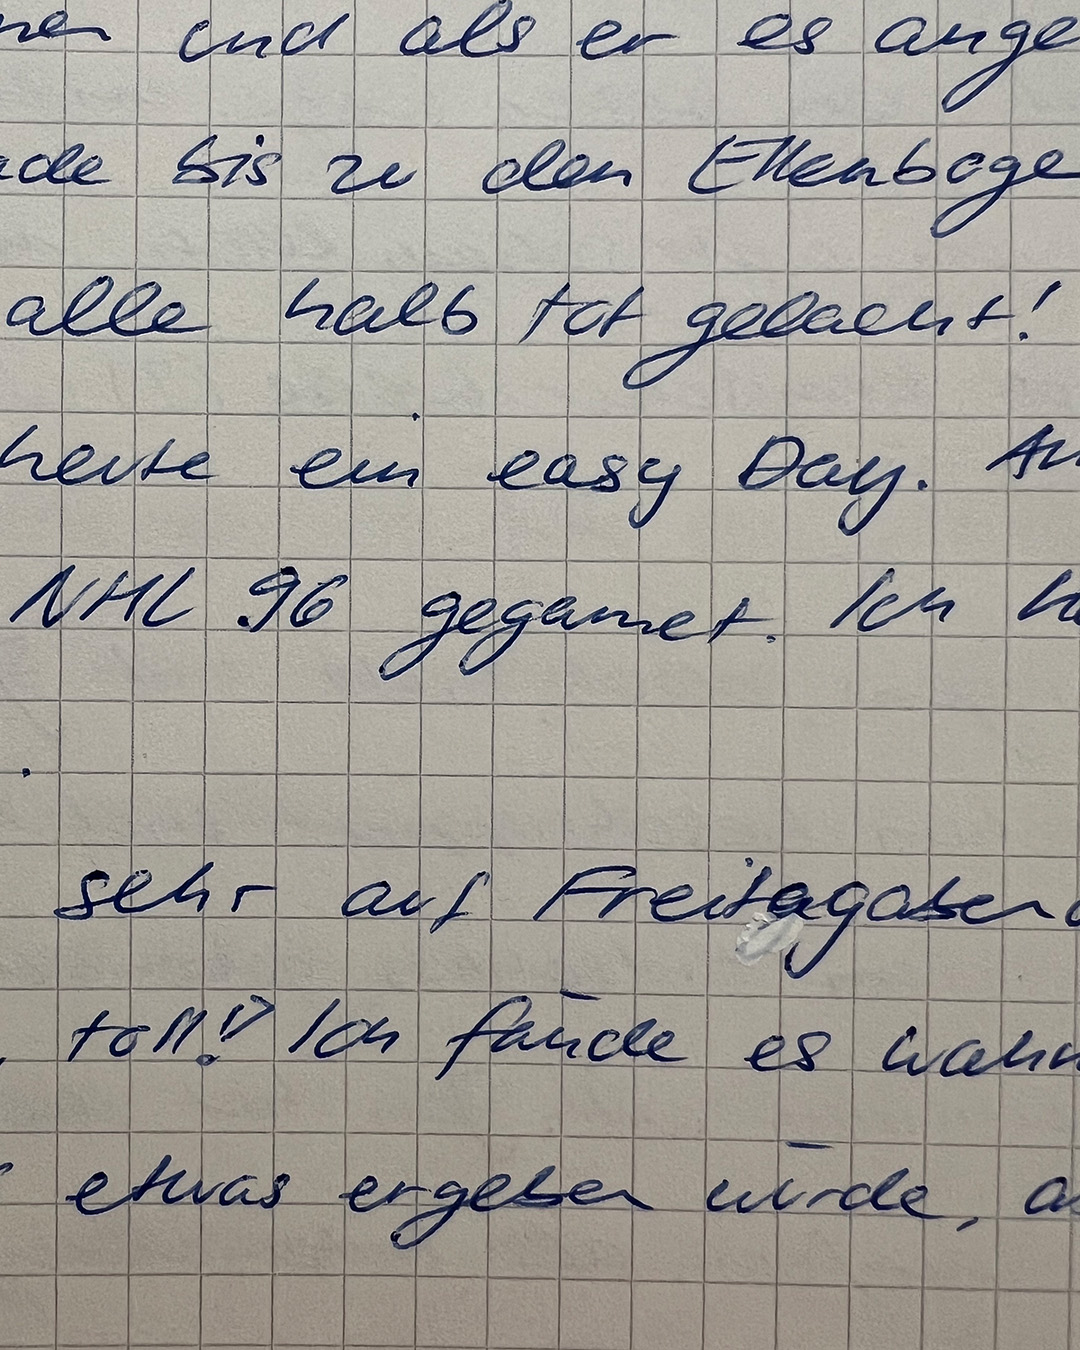 und als er es ange
bis zu den Ellenboge
alle halb tot gelacht!
heute ein easy Day. An
NHL 96 gegamet. Ich ha
.
sehr auf Freitagabend
, toll!? Ich fände es wahn
etwas ergeben würde, a